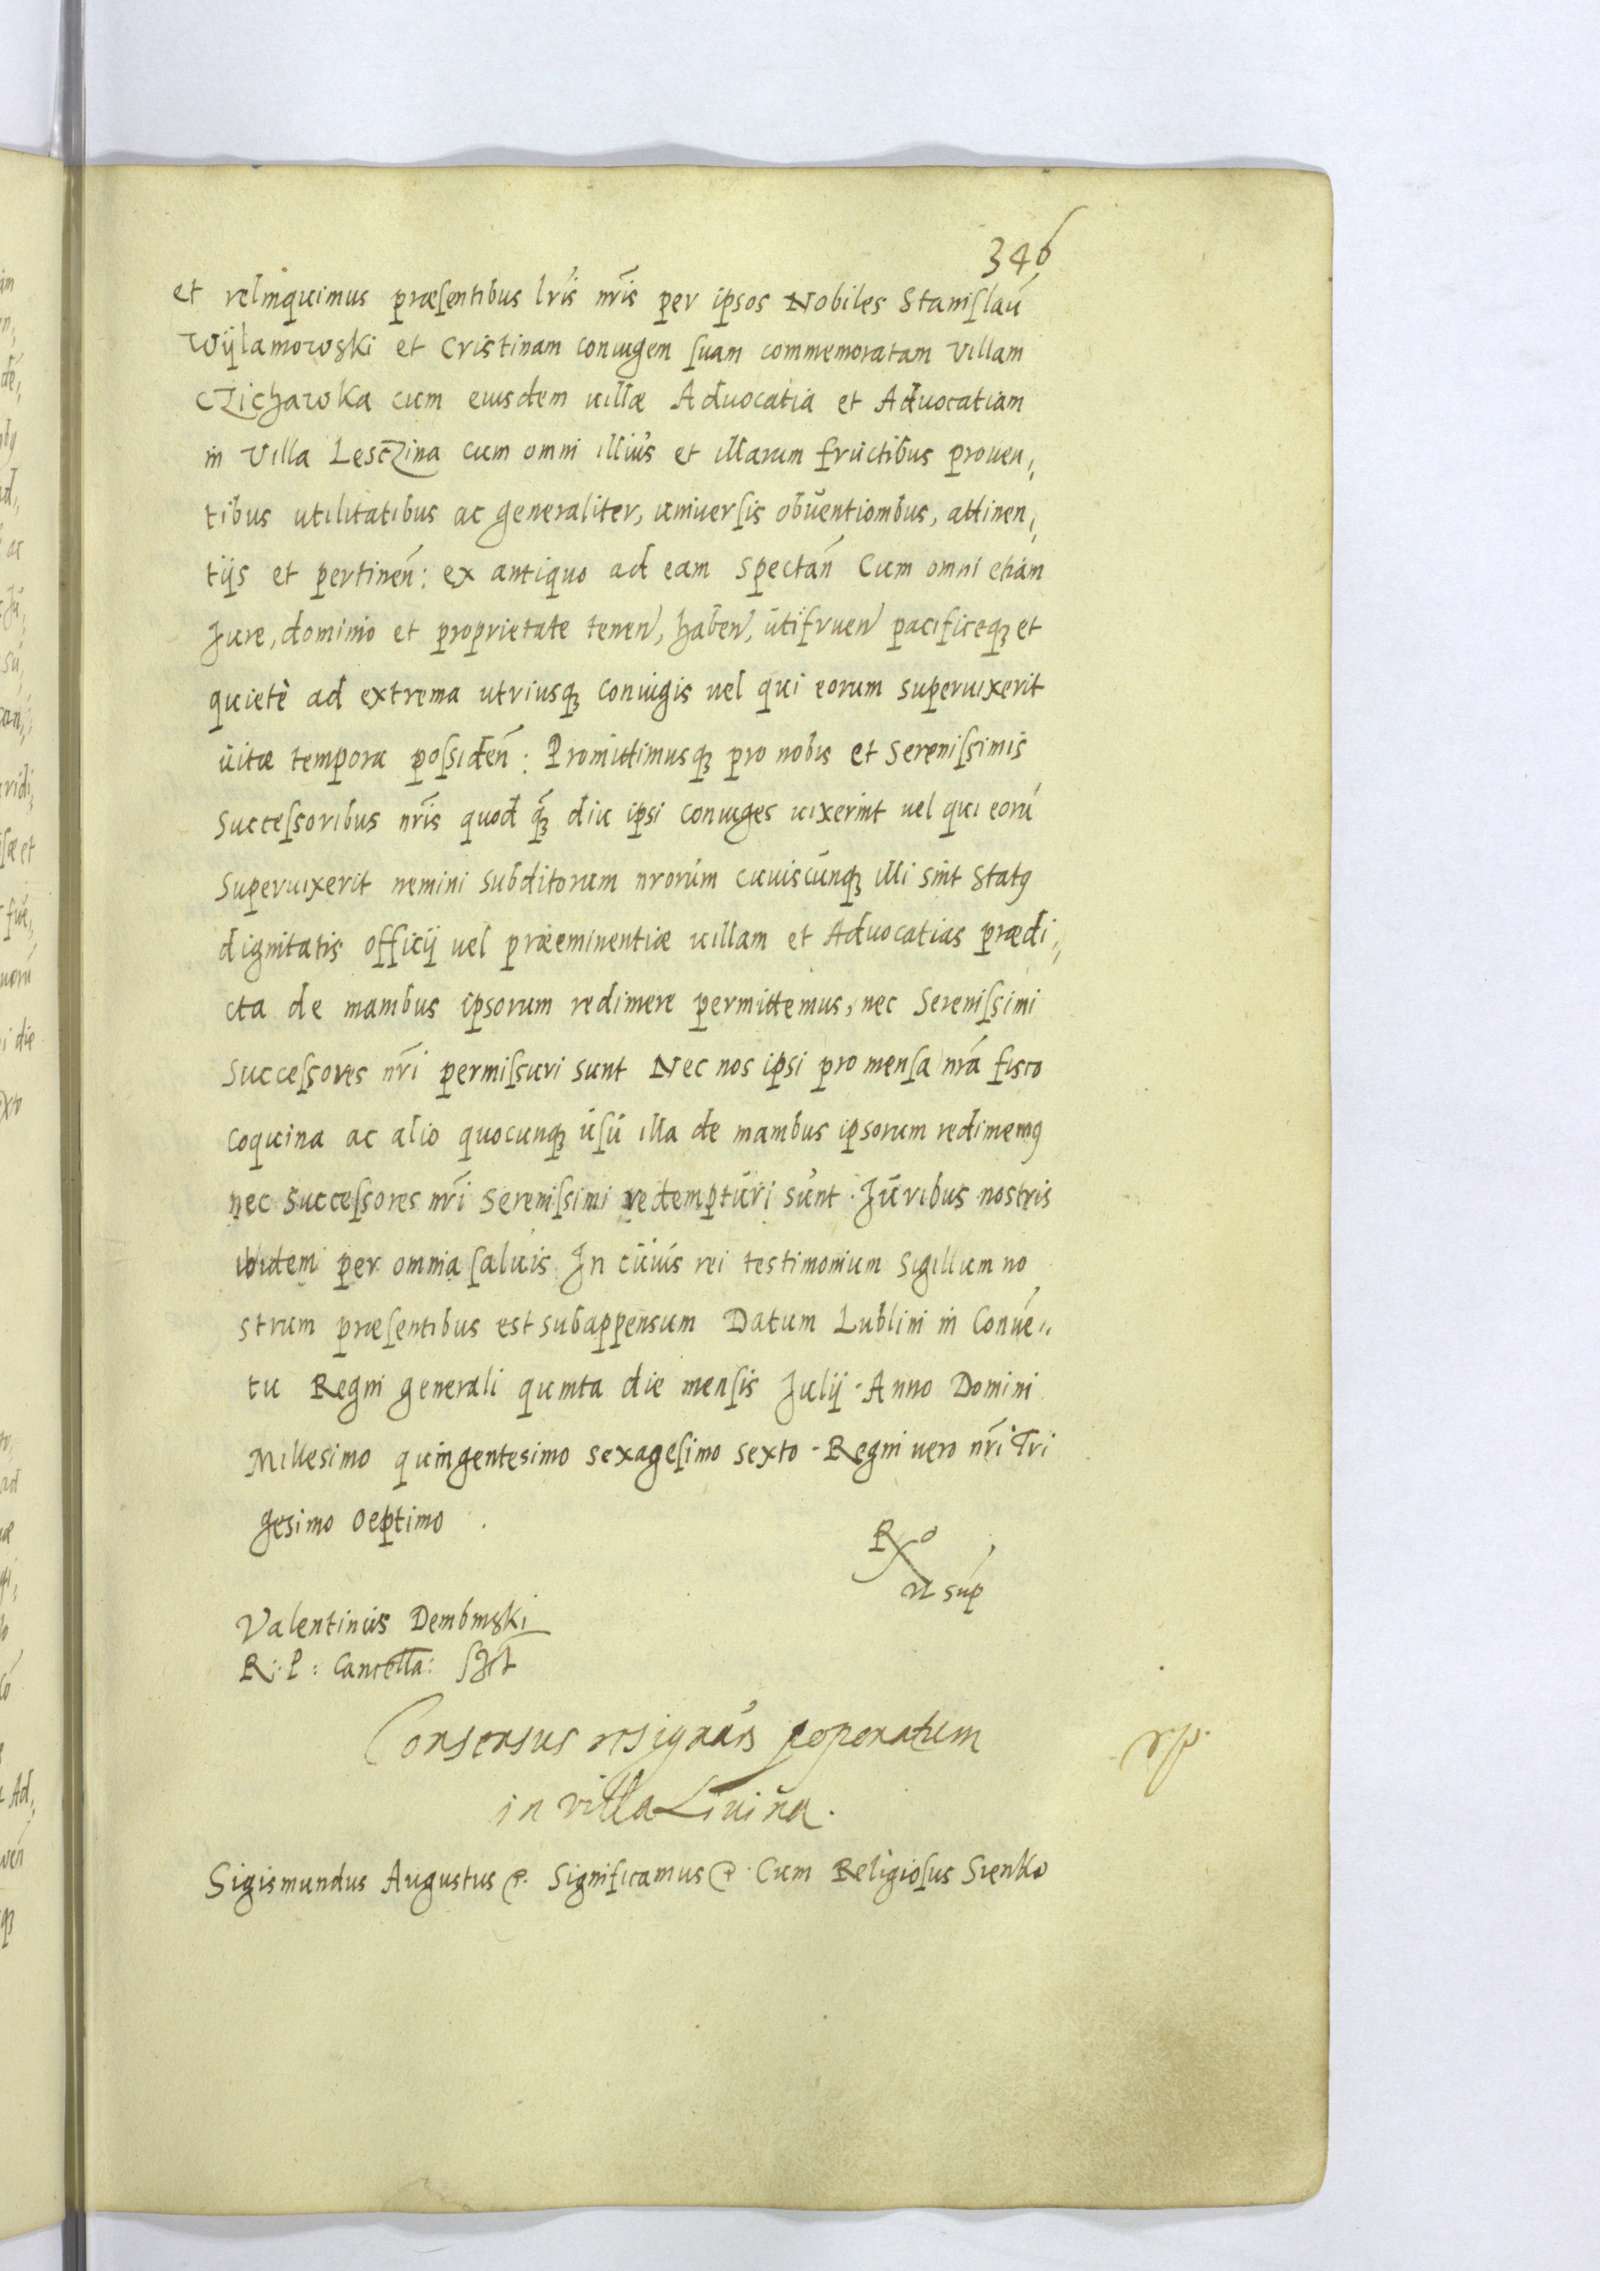 346
et relinquimus præsentibus lr̃is nr̃is per ipsos Nobiles Stanislaũ
Wÿlamowski et Cristinam coniugem suam commemoratam villam
CZichawka cum eiusdem uillæ Aduocatia et Aduocatiam
in Villa LescZina cum omni illius et illarum fructibus prouen,,
tibus utilitatibus ac generaliter, uniuersis obuentionibus, attinen,,
tijs et pertineñ: ex antiquo ad eam spectañ Cum omni etiam
Jure, dominio et proprietate tenen, haben, utifruen pacificeq3 et
quietè ad extrema utriusq3 coniugis uel qui eorum superuixerit
uitæ tempora possideñ: Promittimusq3 pro nobis et Serenissimis
Successoribus nr̃is quod q̃3 diu ipsi coniuges uixerint uel qui eorũ
Superuixerit nemini subditorum nrorum cuiuscunq3 illi sint stat9
dignitatis officij uel præeminentiæ uillam et Aduocatias prædi,,
cta de manibus ipsorum redimere permittemus, nec Serenissimi
Successores nr̃i permissuri sunt Nec nos ipsi pro mensa nr̃a fisco
coquina ac alio quocunq3 usu illa de manibus ipsorum redimem9
nec Successores nr̃i Serenissimi redempturi sunt. Juribus nostris
ibidem per omnia saluis In cuius rei testimonium sigillum no
strum præsentibus est subappensum Datum Lublini in Conuẽ,,
tu Regni generali quinta die mensis Julij. Anno Domini
Millesimo quingentesimo sexagesimo sexto. Regni uero nr̃i Tri
gesimo Septimo.
Ro
ut sup
Valentinus Dembinski
R: P: Cancella: sszt
Consensus resignãis poponatum
in villa Liuina.
Sigismundus Augustus &. Significamus & Cum Religiosus Sienko